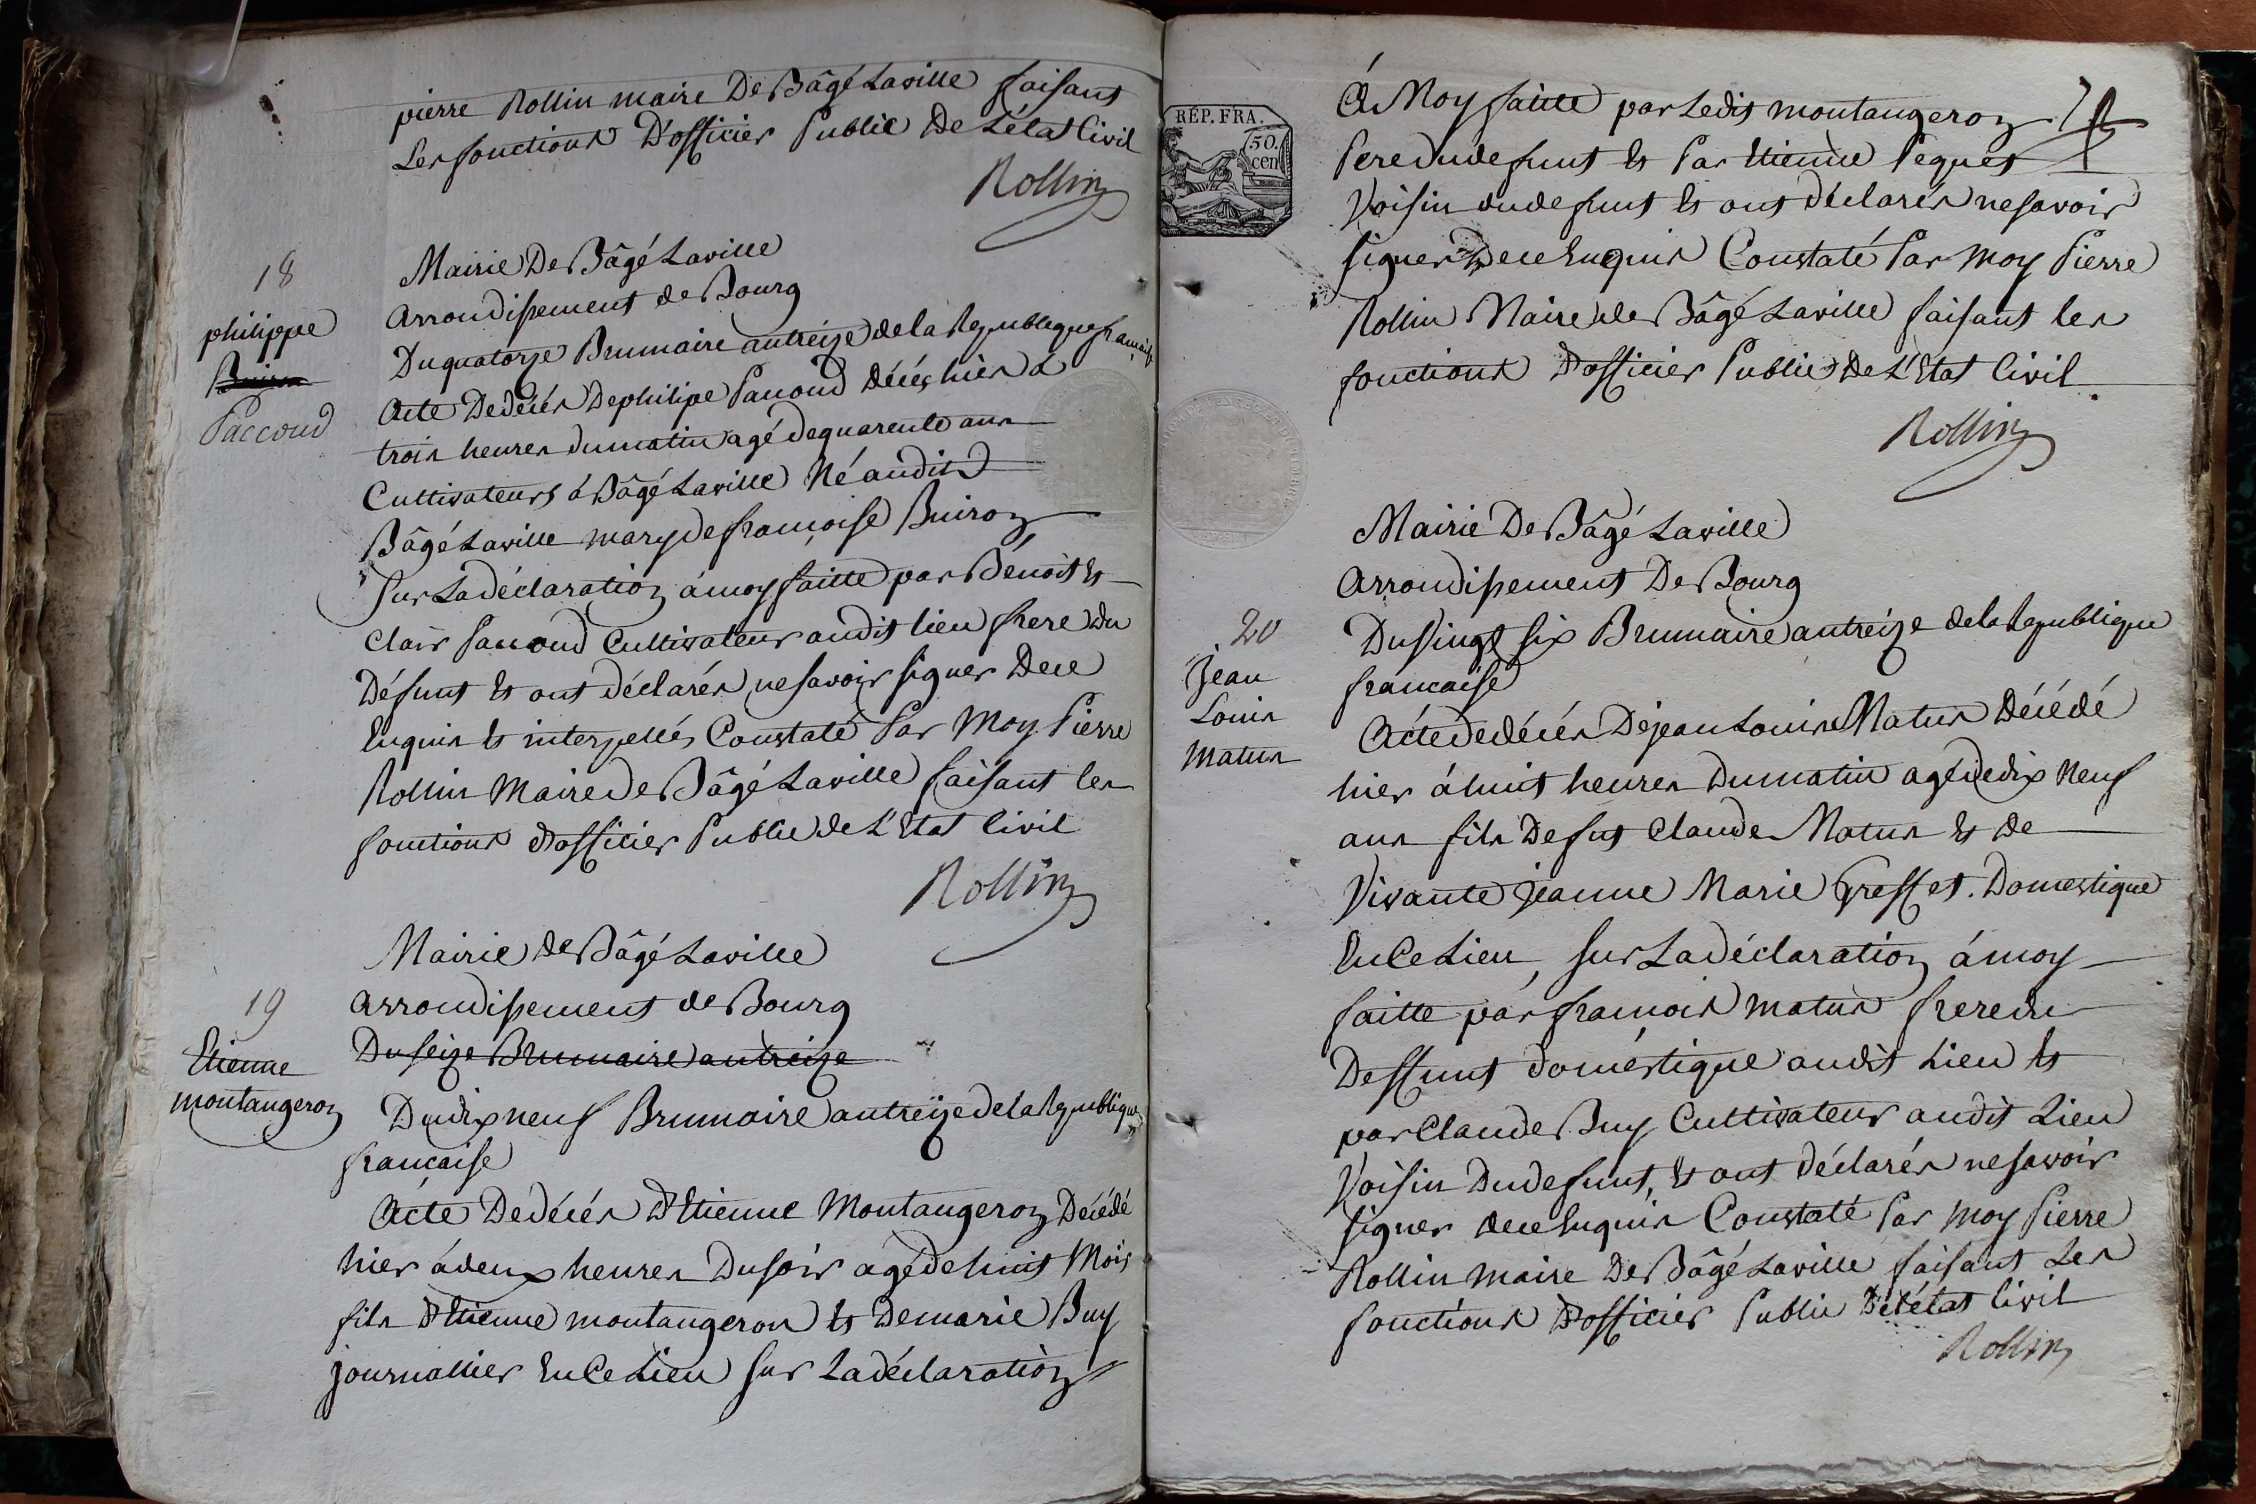 pierre Rollin maire De Bâgé Laville faisant
Les fonctions D'officier Public De L'état Civil
Rollin
18
philippe
Buiron
Paccoud
Mairie De Bâgé Laville
arrondissement de Bourg
Du quatorze Brumaire an treize de la Republique francaise
Acte De décès De philipe Paccoud Décés hier à
trois heures du matin agé de quarente ans
Cultivateurs à Bâgé Laville Né audit
Bâgé Laville mary de françoise Buiron
Sur La déclaration à moy faitte par Bénoit et
Clair Paccoud Cultivateur audit lieu frere Du
Défunt et ont déclarés ne savoir signer De ce
Enquis et interpellés Constaté Par Moy Pierre
Rollin Maire De Bâgé Laville faisant les
fonctions d'officier Public de L'Etat Civil
Rollin
19
Etienne
montangeron
Mairie de Bâgé Laville
arrondissement de Bourg
Du seize Brumaire an treize
Du dix neuf Brumaire an treize de la Republique
francaise
Acte De décès D'Etienne Montangeron Décédé
hier à deux heures Du soir agé de huit Mois
fils d'Etienne montangeron et De marie Buy
journallier En Ce Lieu sur La déclaration
RÉP. FRA.
50.
cen
à Moy faitte par Ledit montangeron
Pere du defunt et Par Etienne Peguet
Voisin du defunt et ont déclarés ne savoir
signer De ce Enquis Constaté Par Moy Pierre
Rollin Maire de Bâgé Laville faisant les
fonctions D'officier Public De L'Etat Civil
Rollin
Mairie De Bâgé Laville
arrondissement De Bourg
20
Jean
Louis
Matus
Du vingt six Brumaire an treize de la Republique
francaise
Acte de décès De jean Louis Matus Décédé
hier à huit heures Du matin agé de dix Neuf
ans fils De fut Claude Matus et de
Vivante jeanne Marie Greffet. Domestique
En Ce Lieu, sur La déclaration à moy
faitte par francois matus frere du
Deffunt doméstique audit Lieu et
par Claude Buy Cultivateur audit Lieu
Voisin Du defunt, et ont déclarés ne savoir
signer de ce Enquis Constaté Par Moy Pierre
Rollin maire De Bâgé Laville faisant Les
fonctions D'officier Public De L'état Civil
Rollin